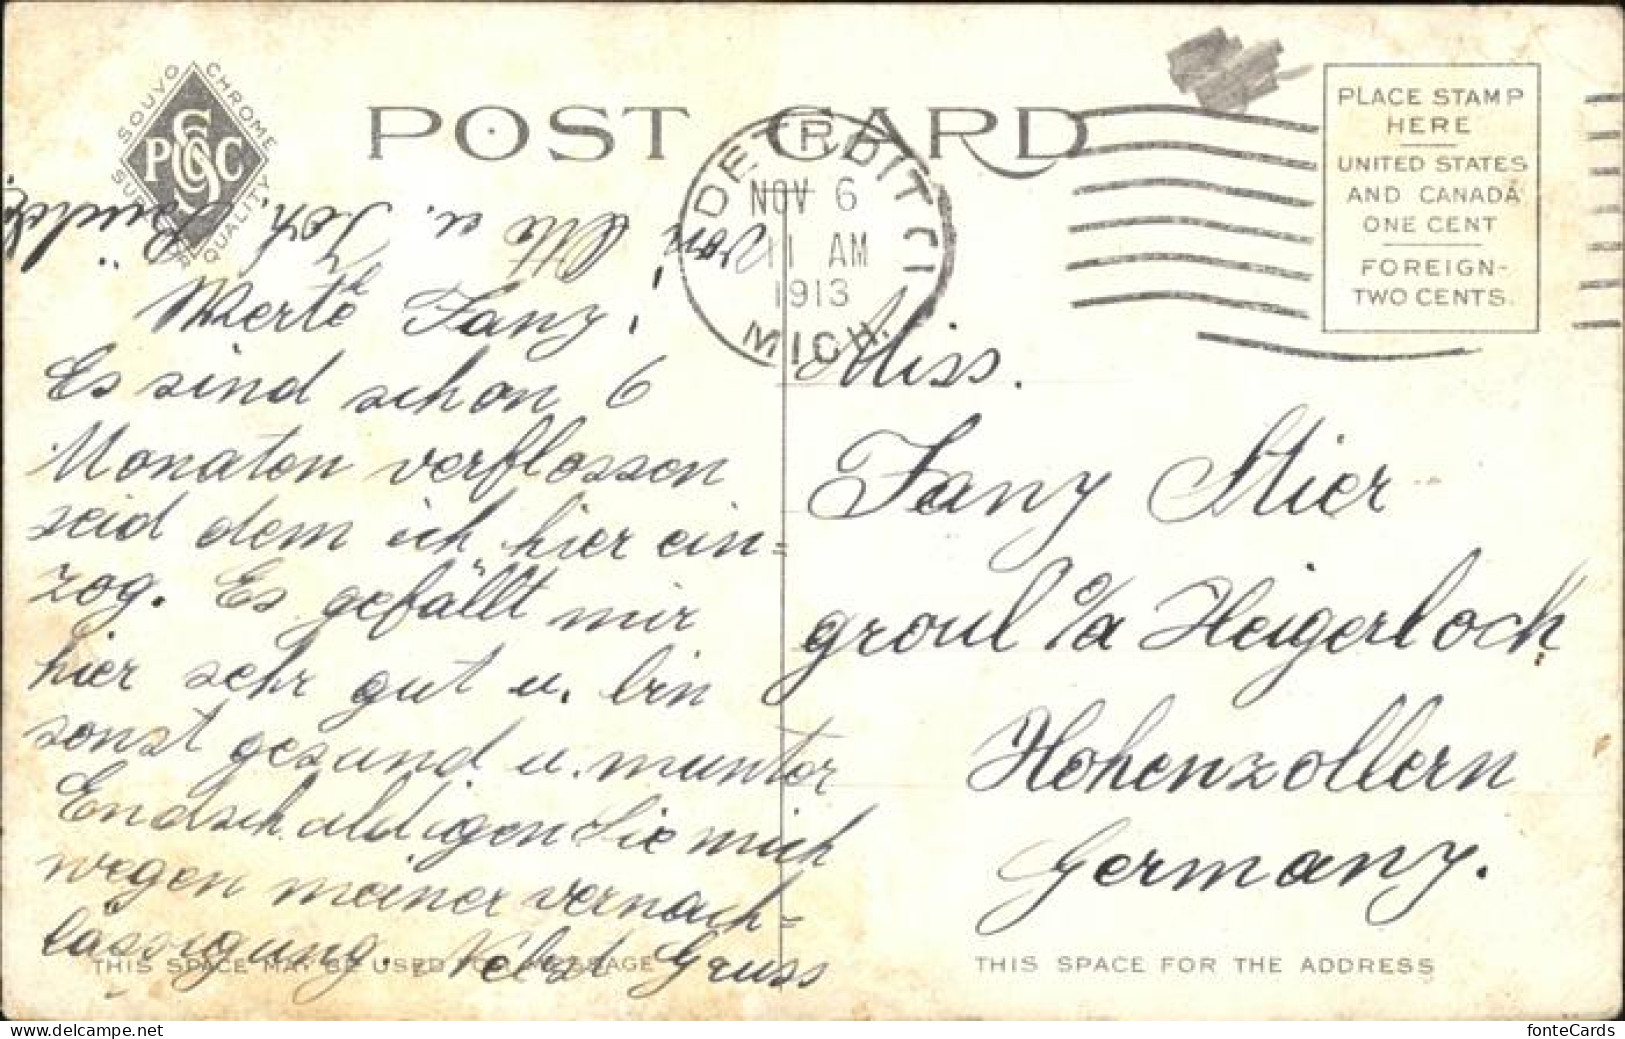 SOUVO CHROME
PSCGC
QUALITY
POST CARD
DETROIT
NOV 6
11 AM
1913
MICH.
PLACE STAMP
HERE
UNITED STATES
AND CANADA
ONE CENT
FOREIGN-
TWO CENTS.
Werte Fany!
Es sind schon 6
Monaten verflossen
seid dem ich hier ein=
zog. Es gefällt mir
hier sehr gut u. bin
sonst gesund u. munter
Endschuldigen Sie mich
wegen meiner vernach=
lässigung. Nebst Gruss
von u. Joh.
Miss.
Fany Stier
groul o/a Heigerloch
Hohenzollern
Germany.
THIS SPACE MAY BE USED FOR MESSAGE
THIS SPACE FOR THE ADDRESS
fonteCards